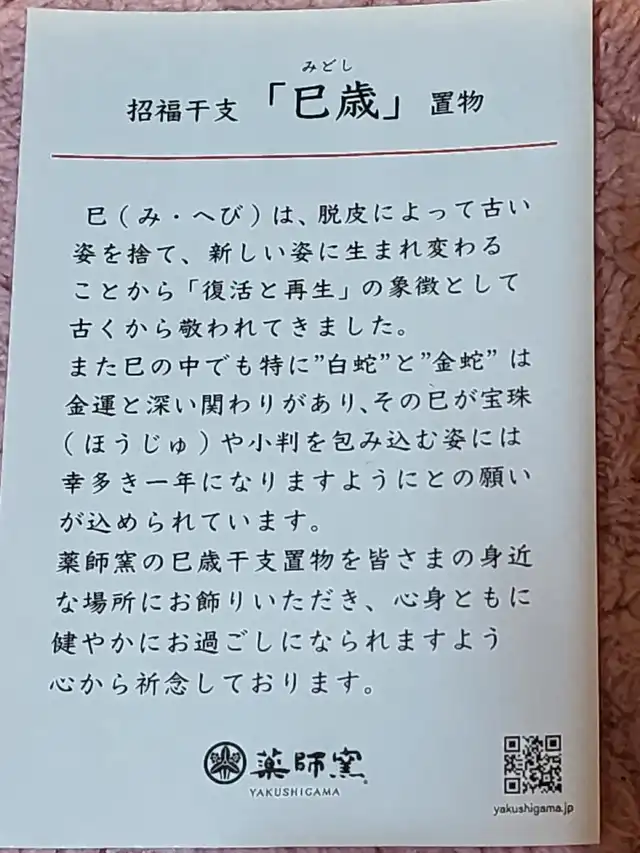 みどし
招福干支「巳歳」置物
巳(み・へび)は、脱皮によって古い
姿を捨て、新しい姿に生まれ変わる
ことから「復活と再生」の象徴として
古くから敬われてきました。
また巳の中でも特に”白蛇”と”金蛇”は
金運と深い関わりがあり、その巳が宝珠
(ほうじゅ)や小判を包み込む姿には
幸多き一年になりますようにとの願い
が込められています。
薬師窯の巳歳干支置物を皆さまの身近
な場所にお飾りいただき、心身ともに
健やかにお過ごしになられますよう
心から祈念しております。
薬師窯
YAKUSHIGAMA
yakushigama.jp